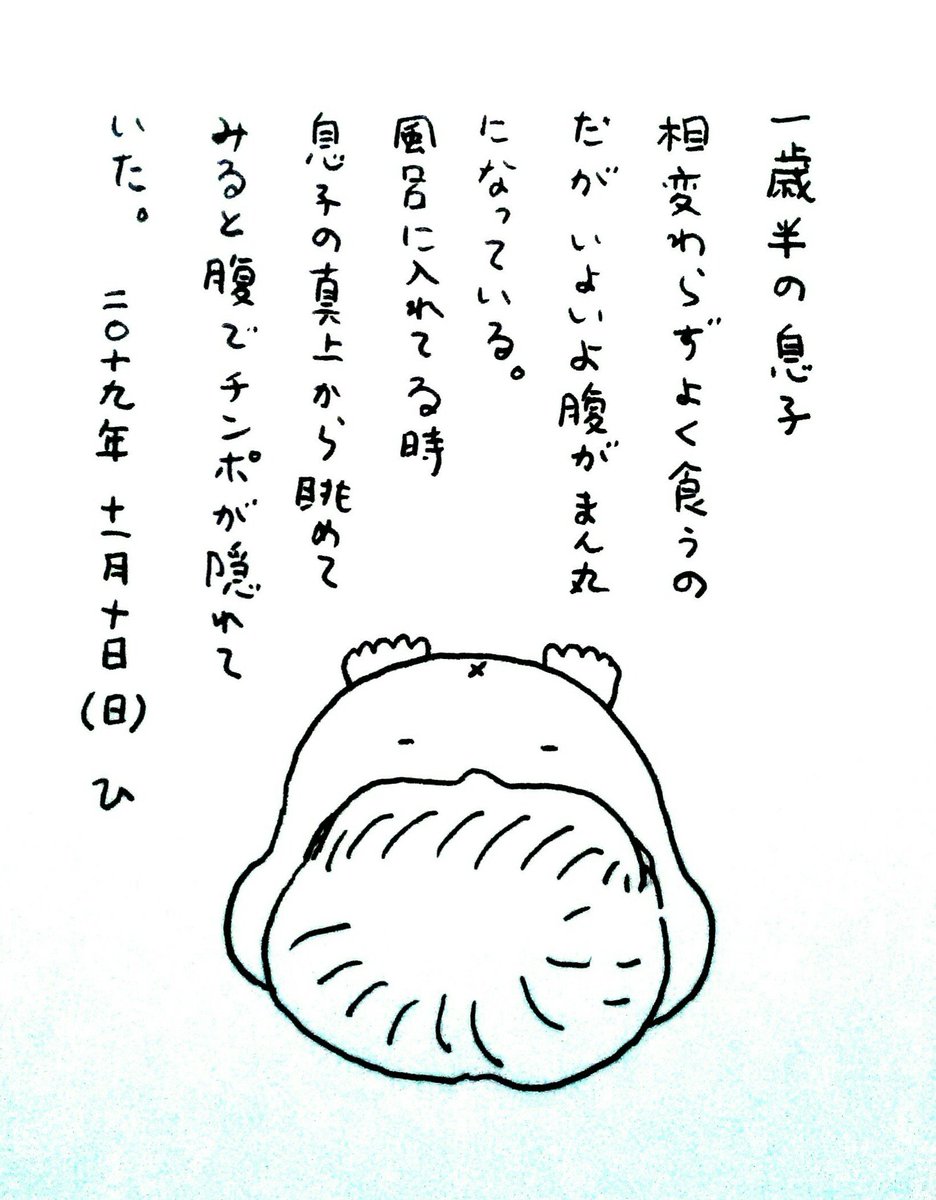 一歳半の息子
相変わらずよく食うの
だが いよいよ腹がまん丸
になっている。
風呂に入れてる時
息子の真上から眺めて
みると腹でチンポが隠れて
いた。 二〇十九年 十一月十日(日) ひ